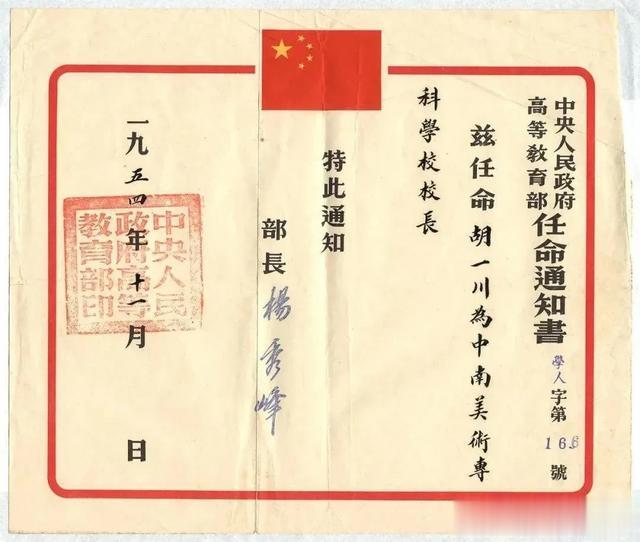 中央人民政府
高等教育部
任命通知書
學人字第166號
兹任命胡一川為中南美術專
科學校校長
特此通知
部長 楊秀峰
一九五四年十一月 日
中央人民
政府高等
教育部印